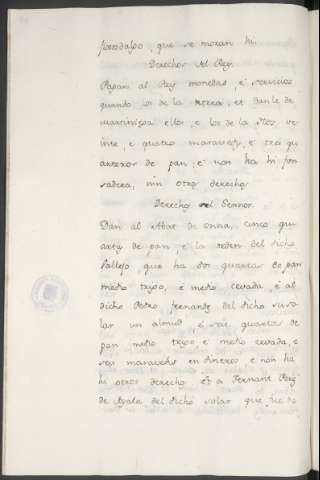 fijosdalgo, que se moran hi.
Derechos del Rey.
Pagan al Rey monedas, é servicios
quando los de la tierra, et danle de
martiniega ellos, e los de la Noz ve
inte, e quatro maravedis, e tres qu
arteros de pan, e non ha hi fon
sadera, nin otro derecho
Derecho del Sennor.
Dan al Abat de onna, cinco qu
artas de pan, e la orden del dicho
Vallejo que ha dos quartas de pan
medio trigo, é medio cevada, é al
dicho Pedro fernandez del dicho suso
lar un almud, é seis quartas de
pan medio trigo, e medio cevada, e
seis maravedis en dineros e non ha
hi otros derecho Et a Fernant Perez
de Ayala del dicho solar que fue de